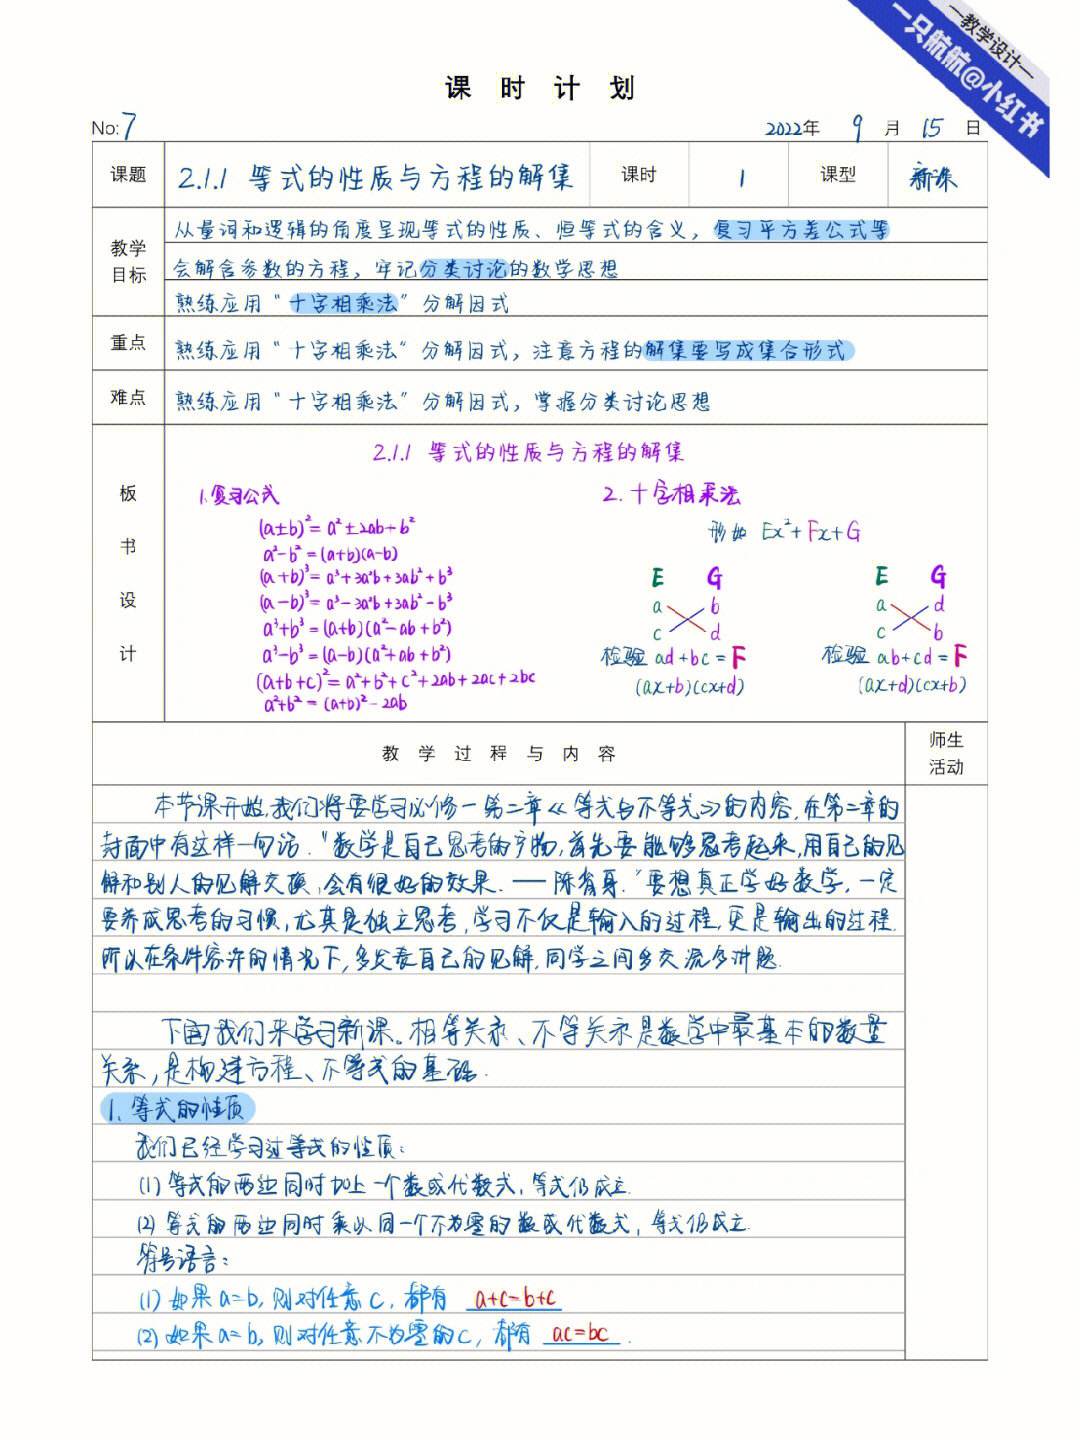 一教学设计一
一只航航@小红书
课时计划
No: 7
2022年 9月 15日
课题 2.1.1 等式的性质与方程的解集 课时 1 课型 新课
教学目标
从量词和逻辑的角度呈现等式的性质、恒等式的含义，复习平方差公式等
会解含参数的方程，牢记分类讨论的数学思想
熟练应用“十字相乘法”分解因式
重点 熟练应用“十字相乘法”分解因式，注意方程的解集要写成集合形式
难点 熟练应用“十字相乘法”分解因式，掌握分类讨论思想
板书设计
2.1.1 等式的性质与方程的解集
1.复习公式
(a±b)²=a²±2ab+b²
a²-b²=(a+b)(a-b)
(a+b)³=a³+3a²b+3ab²+b³
(a-b)³=a³-3a²b+3ab²-b³
a³+b³=(a+b)(a²-ab+b²)
a³-b³=(a-b)(a²+ab+b²)
(a+b+c)²=a²+b²+c²+2ab+2ac+2bc
a²+b²=(a+b)²-2ab
2.十字相乘法
形如 Ex²+Fx+G
E G
a b
c d
检验 ad+bc=F
(ax+b)(cx+d)
E G
a d
c b
检验 ab+cd=F
(ax+d)(cx+b)
教学过程与内容
师生活动
本节课开始,我们将要学习必修一第二章《等式与不等式》的内容,在第二章的
封面中有这样一句话."数学是自己思考的产物,首先要能够思考起来,用自己的见
解和别人的见解交换,会有很好的效果.——陈省身."要想真正学好数学,一定
要养成思考的习惯,尤其是独立思考,学习不仅是输入的过程,更是输出的过程.
所以在条件容许的情况下,多发表自己的见解,同学之间多交流多讲题.
下面我们来学习新课。相等关系、不等关系是数学中最基本的数量
关系,是构建方程、不等式的基础.
1、等式的性质
我们已经学习过等式的性质:
(1) 等式的两边同时加上一个数或代数式,等式仍成立.
(2) 等式的两边同时乘以同一个不为零的数或代数式,等式仍成立.
符号语言:
(1) 如果a=b,则对任意c,都有 a+c=b+c
(2) 如果a=b,则对任意不为零的c,都有 ac=bc.